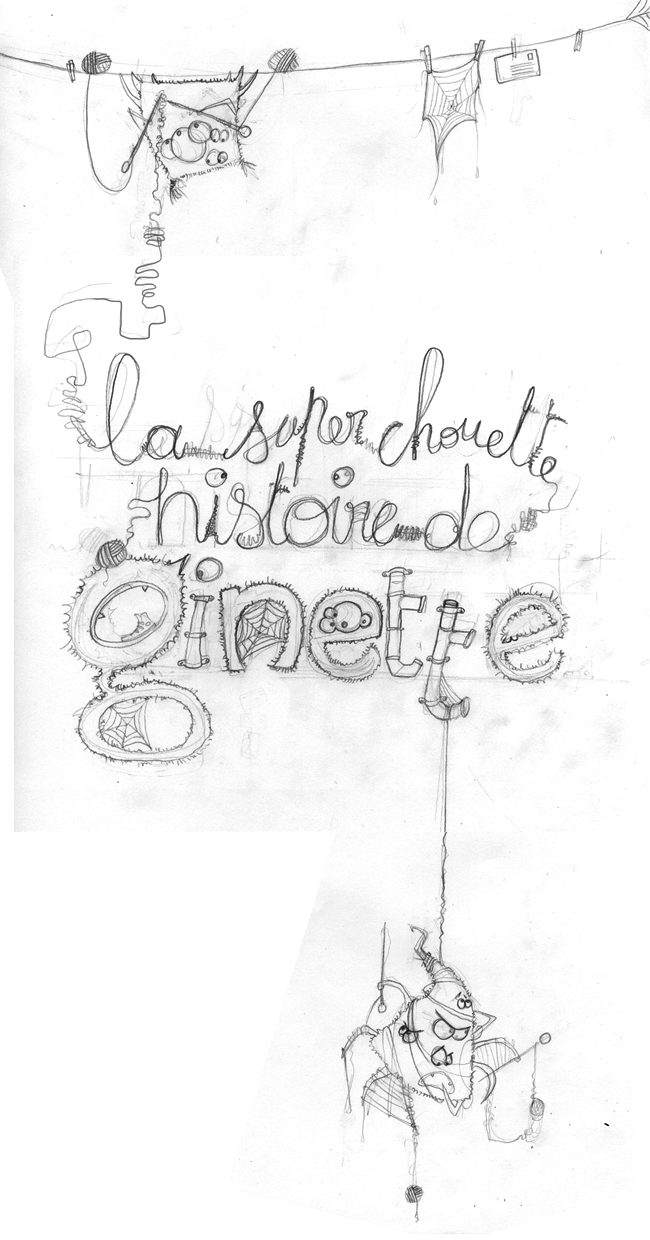 la super chouette
histoire de
ginette